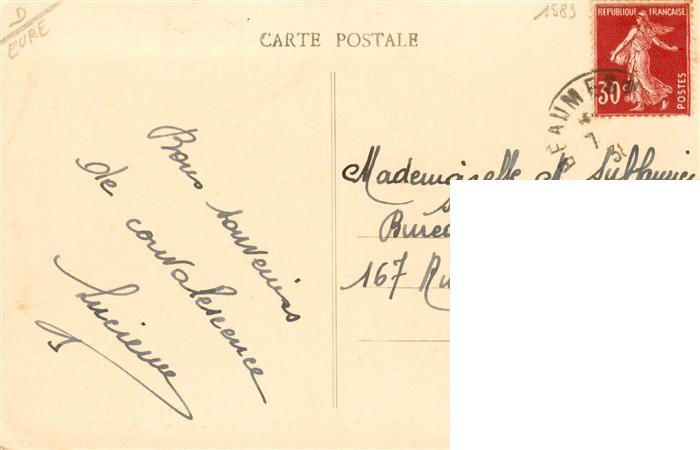 D
EURE
CARTE POSTALE
1583
REPUBLIQUE FRANÇAISE
30c
POSTES
BEAUMET
7
Bons souvenirs
de convalescence
Lucienne
Mademoiselle
167 Ru